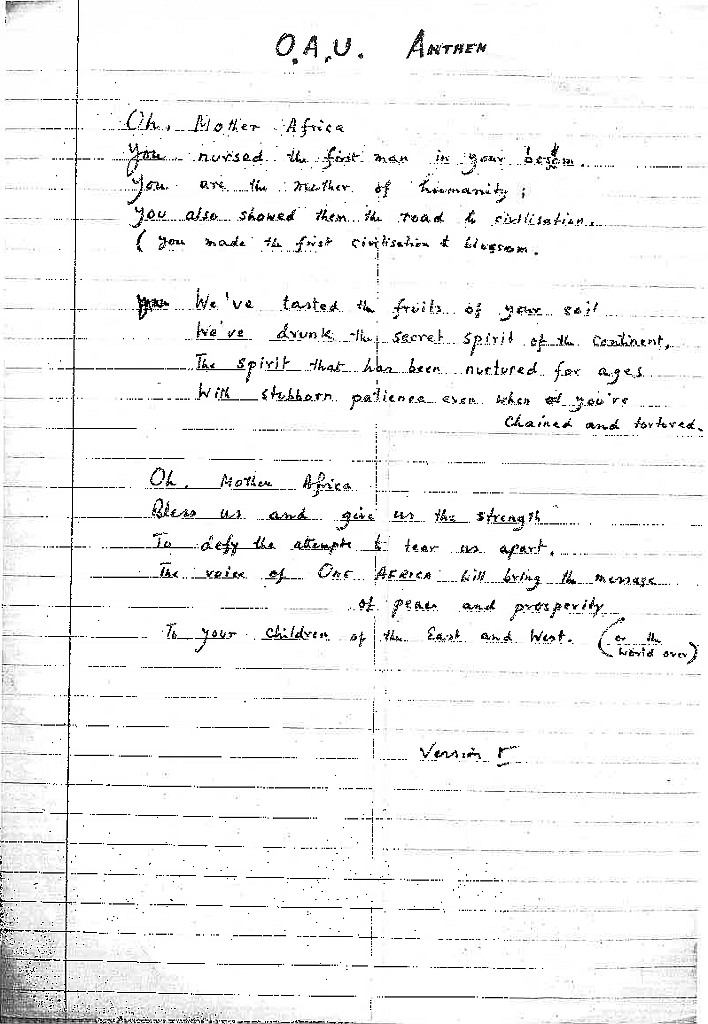 O.A.U. ANTHEM
Oh, Mother Africa
You nursed the first man in your bosom.
You are the mother of humanity;
You also showed them the road to civilisation.
( you made the first civilisation to blossom.
We've tasted the fruits of your soil
We've drunk the secret spirit of the continent,
The spirit that has been nurtured for ages
With stubborn patience even when you're
chained and tortured.
Oh, Mother Africa
Bless us and give us the strength
To defy the attempts to tear us apart.
The voice of ONE AFRICA will bring the message
of peace and prosperity
To your children of the East and West. (or the
world over)
Version